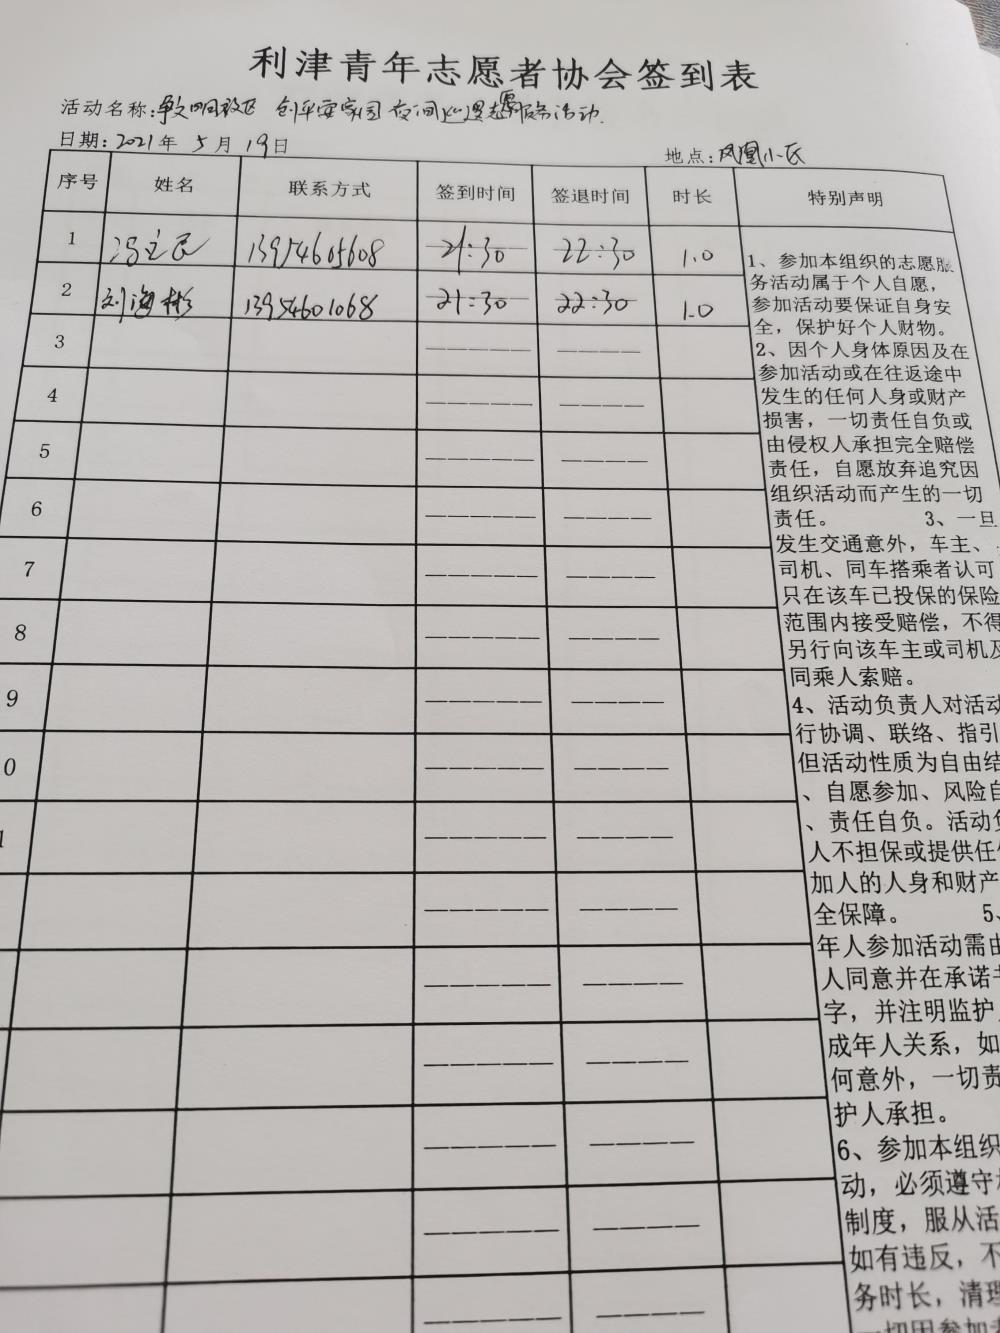 利津青年志愿者协会签到表
活动名称: 创平安家园 夜间巡逻志愿服务活动
日期: 2021年 5月 19日 地点: 凤凰小区
序号 姓名 联系方式 签到时间 签退时间 时长 特别声明
1 冯立民 13954605608 21:30 22:30 1.0
2 刘海彬 13954601068 21:30 22:30 1.0
3
4
5
6
7
8
9
0
1
1、参加本组织的志愿服
务活动属于个人自愿，
参加活动要保证自身安
全，保护好个人财物。
2、因个人身体原因及在
参加活动或在往返途中
发生的任何人身或财产
损害，一切责任自负或
由侵权人承担完全赔偿
责任，自愿放弃追究因
组织活动而产生的一切
责任。 3、一旦
发生交通意外，车主、
司机、同车搭乘者认可
只在该车已投保的保险
范围内接受赔偿，不得
另行向该车主或司机及
同乘人索赔。
4、活动负责人对活动
行协调、联络、指引
但活动性质为自由结
、自愿参加、风险自
、责任自负。活动负
人不担保或提供任何
加人的人身和财产
全保障。 5、
年人参加活动需由
人同意并在承诺书
字，并注明监护人
成年人关系，如
何意外，一切责
护人承担。
6、参加本组织
动，必须遵守
制度，服从活
如有违反，不
务时长，清理
一切因参加